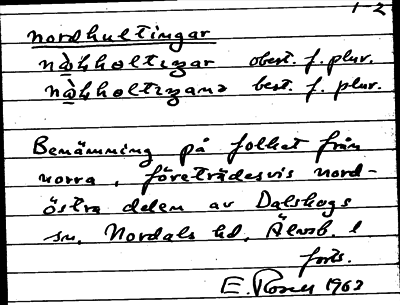 1-2
nordhultingar
nòhholtiŋar obest. f. plur.
nòhholtiŋana best. f. plur.
Benämning på folket från
norra, företrädesvis nord-
östra delen av Dalskogs
sn, Nordals hd, Älvsb. l
forts.
E. Rosen 1963